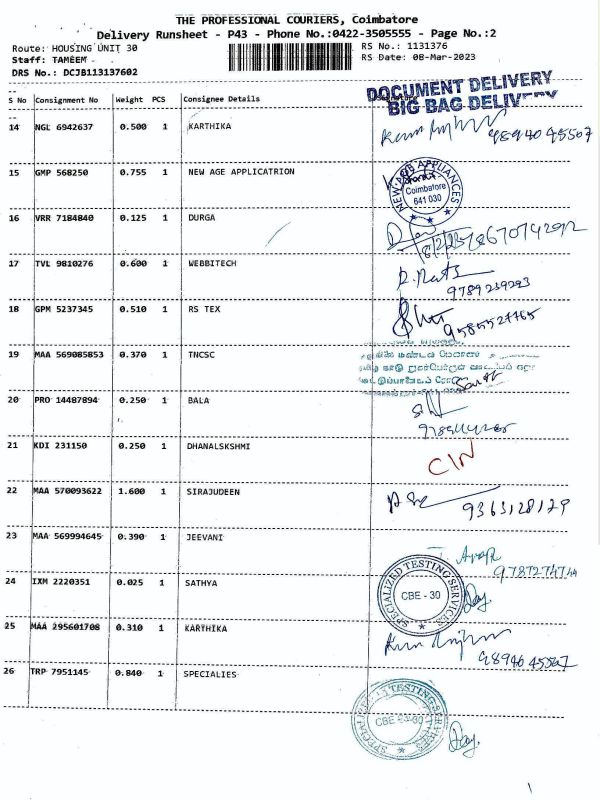 THE PROFESSIONAL COURIERS, Coimbatore
Delivery Runsheet - P43 - Phone No.:0422-3505555 - Page No.:2
Route: HOUSING UNIT 30
RS No.: 1131376
Staff: TAMEEM
RS Date: 08-Mar-2023
DRS No.: DCJB113137602
DOCUMENT DELIVERY
BIG BAG DELIVERY
S No Consignment No Weight PCS Consignee Details
14 NGL 6942637 0.500 1 KARTHIKA
9894045567
15 GMP 568250 0.755 1 NEW AGE APPLICATRION
NEW AGE APPLIANCES
Coimbatore
641 030
16 VRR 7184840 0.125 1 DURGA
17 TVL 9810276 0.600 1 WEBBITECH
9789239293
18 GPM 5237345 0.510 1 RS TEX
9585527765
19 MAA 569085853 0.370 1 TNCSC
20 PRO 14487894 0.250 1 BALA
21 KDI 231150 0.250 1 DHANALSKSHMI
CIN
22 MAA 570093622 1.600 1 SIRAJUDEEN
9363128129
23 MAA 569994645 0.390 1 JEEVANI
24 IXM 2220351 0.025 1 SATHYA
SPECIALIZED TESTING SERVICES
CBE - 30
25 MAA 295601708 0.310 1 KARTHIKA
9894045567
26 TRP 7951145 0.840 1 SPECIALIES
SPECIALIZED TESTING SERVICES
CBE - 30